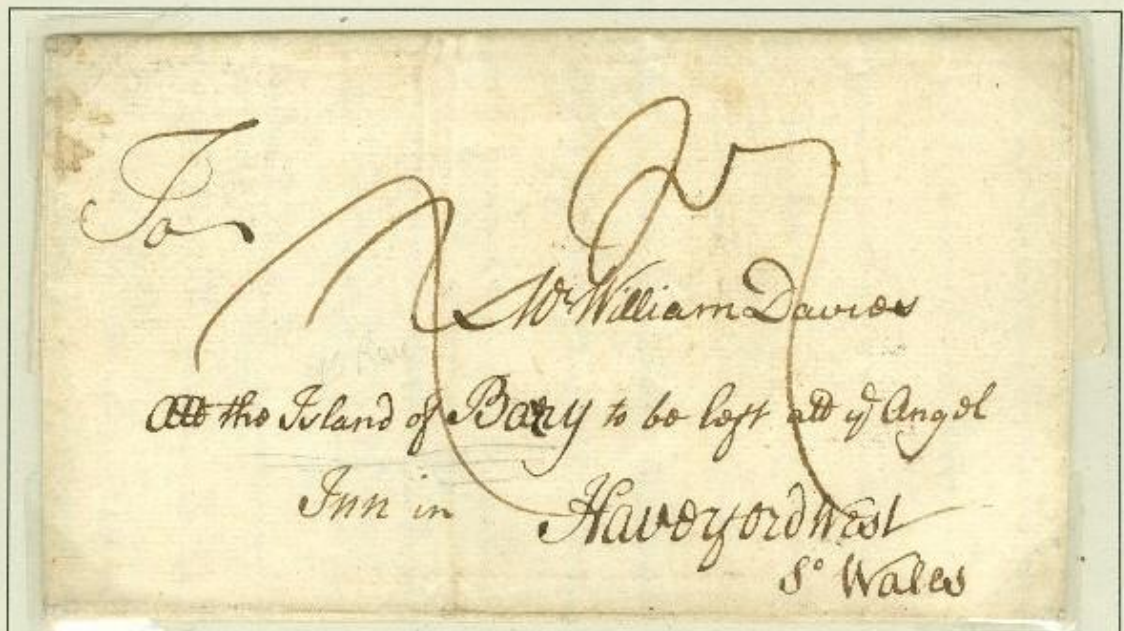 To
Mr William Davies
Att the Island of Barry to be left att ye Angel
Inn in Haverfordwest
So Wales